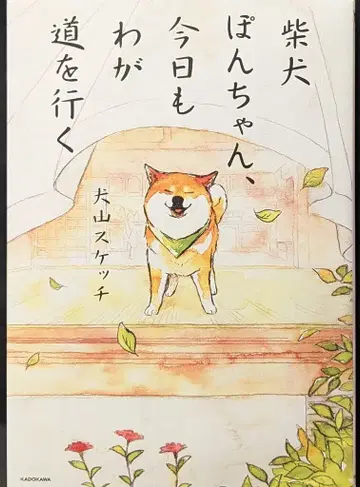 柴犬
ぽんちゃん、
今日も
わが
道を行く
犬山スケッチ
KADOKAWA